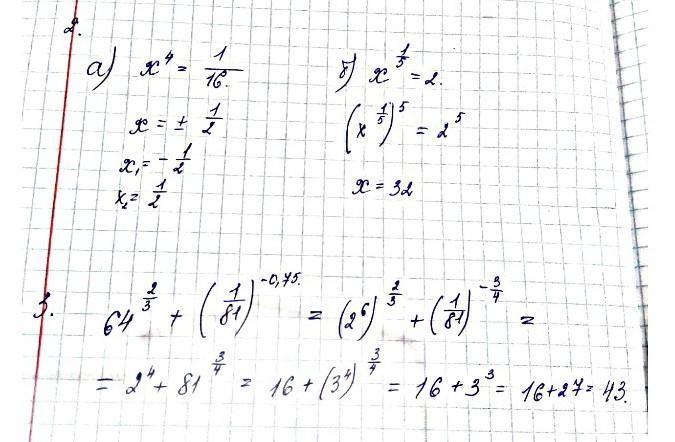 2.
а) x⁴ = 1/16.
x = ± 1/2
x₁ = - 1/2
x₂ = 1/2
б) x^(1/5) = 2.
(x^(1/5))⁵ = 2⁵
x = 32
3. 64^(2/3) + (1/81)^(-0,75.) = (2⁶)^(2/3) + (1/81)^(-3/4) =
= 2⁴ + 81^(3/4) = 16 + (3⁴)^(3/4) = 16 + 3³ = 16 + 27 = 43.